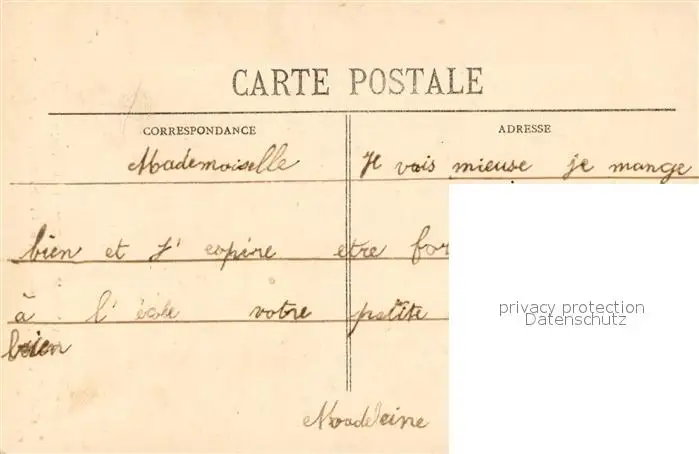 CARTE POSTALE
CORRESPONDANCE
ADRESSE
Mademoiselle Je vais mieuse je mange
bien et J' espire etre for
à l' école votre petite
bien
Madeleine
privacy protection
Datenschutz